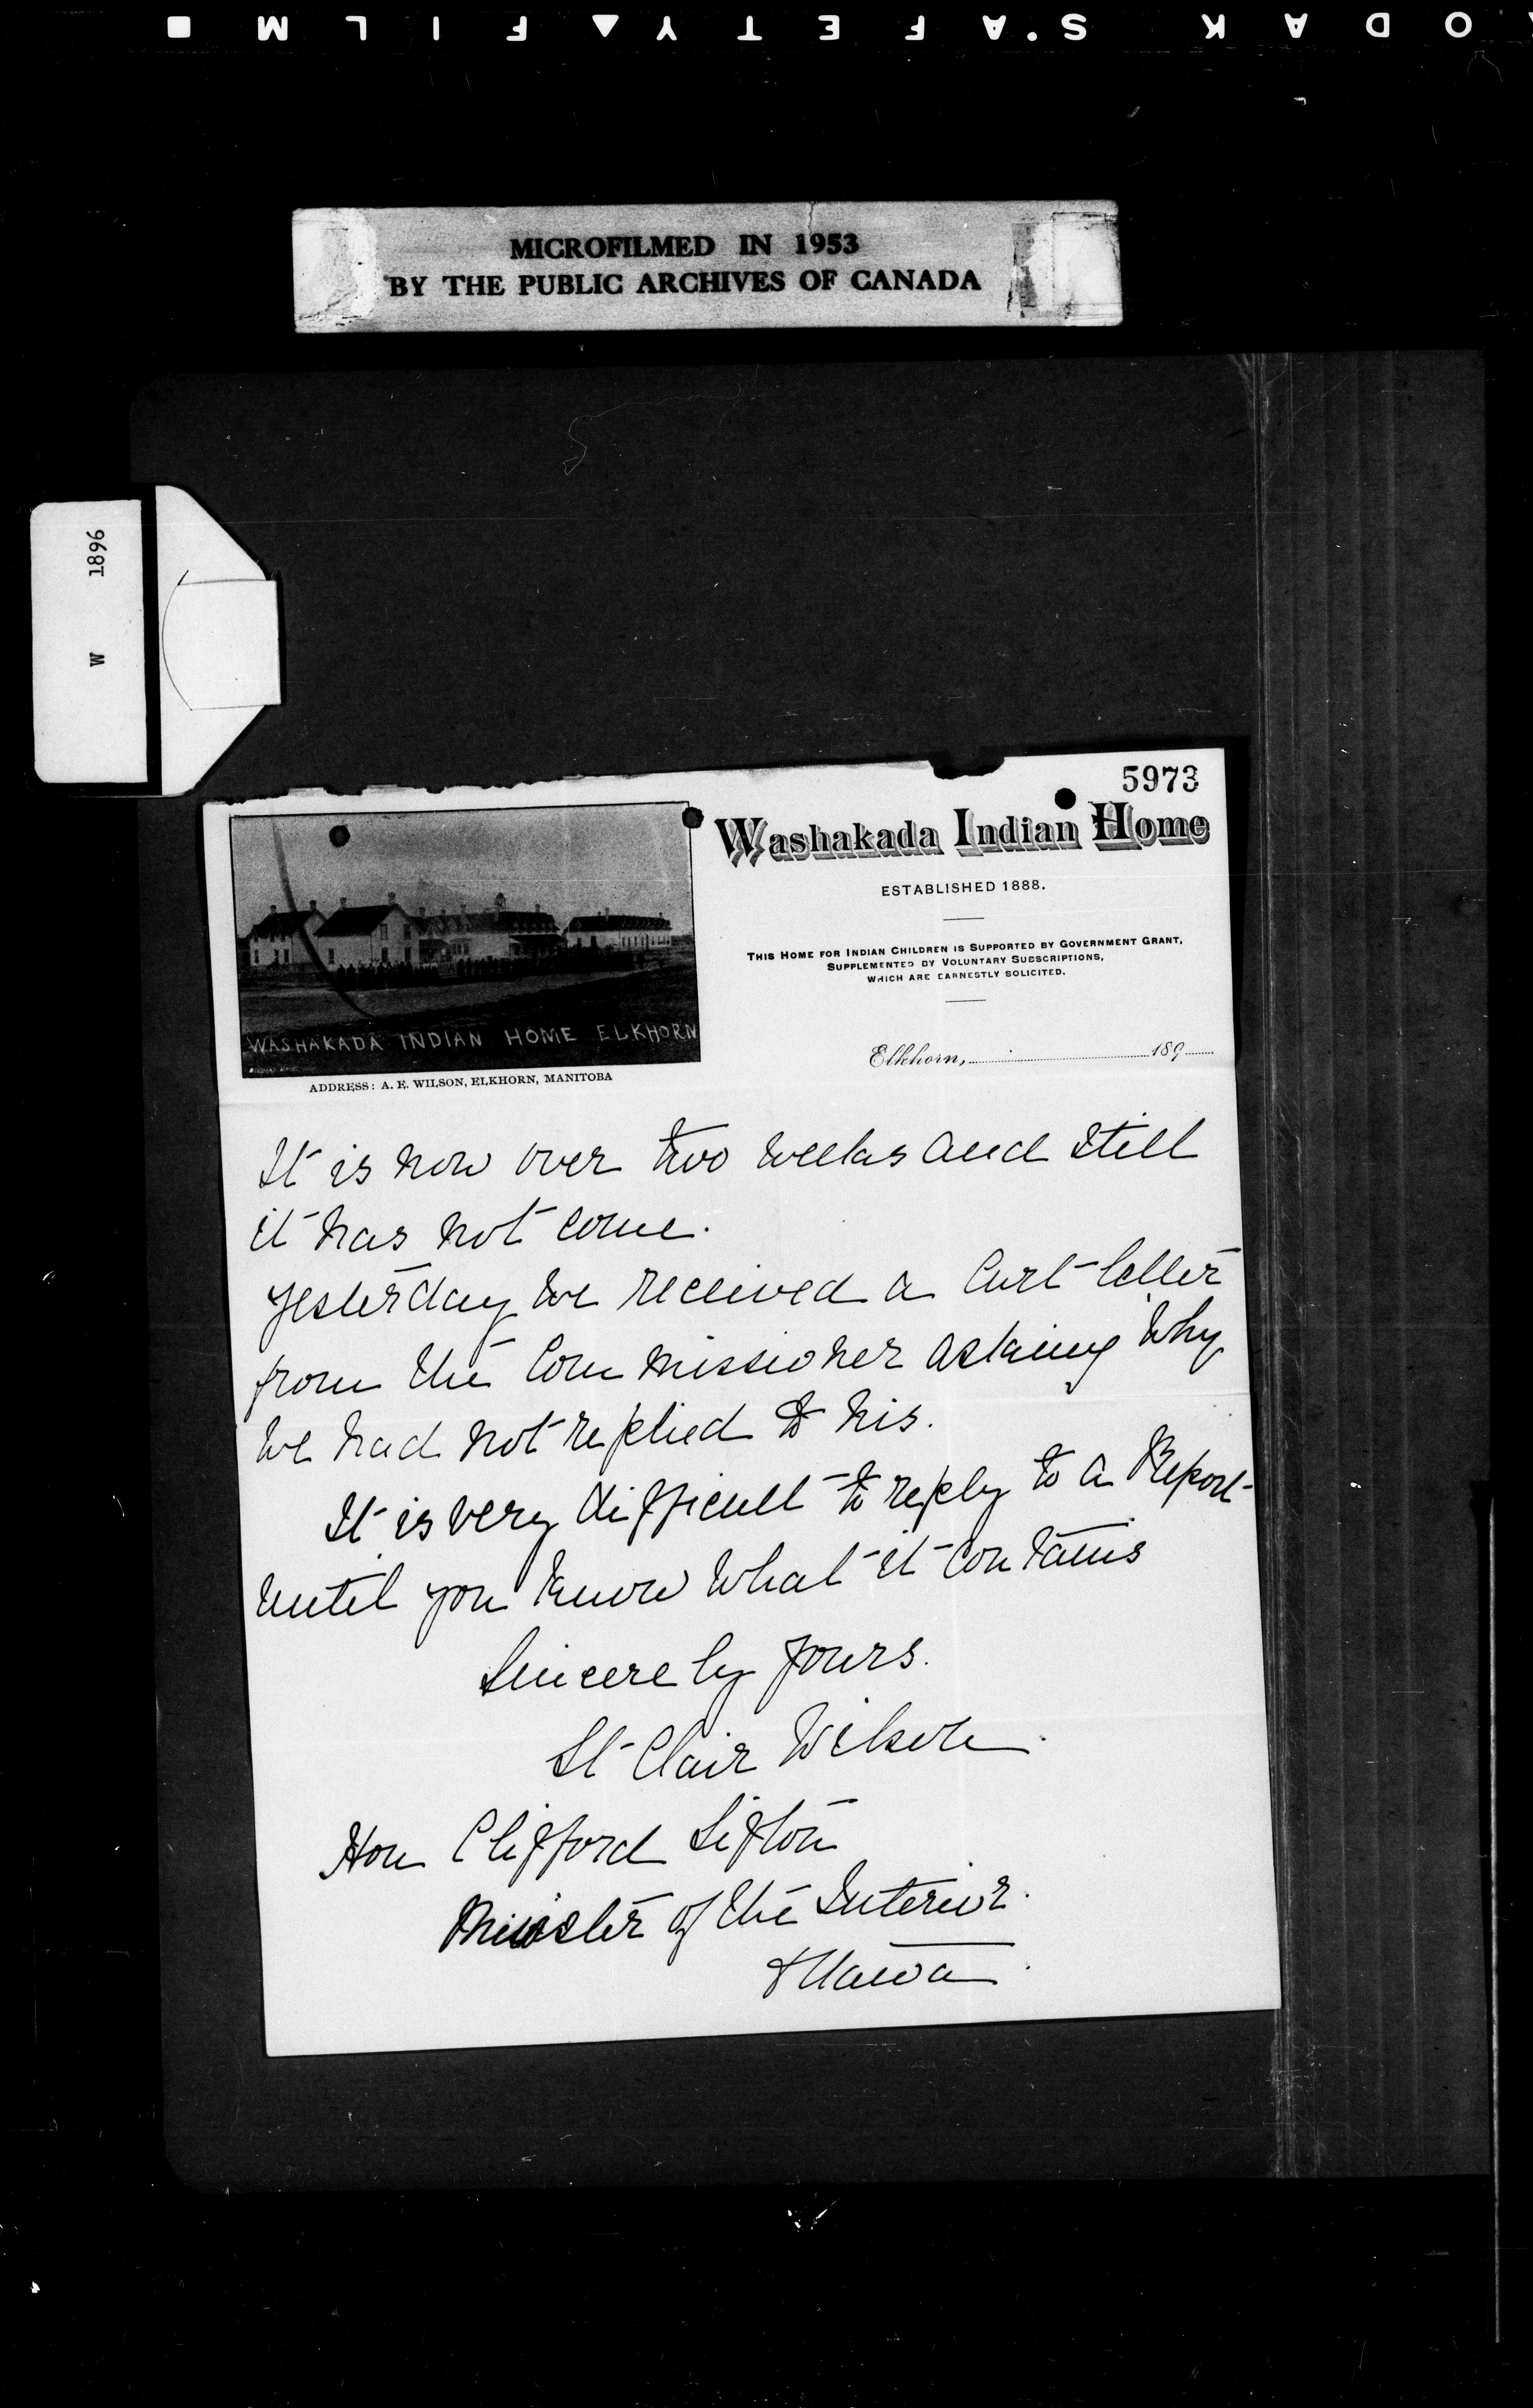 KODAK SAFETY FILM
MICROFILMED IN 1953
BY THE PUBLIC ARCHIVES OF CANADA
W 1896
5973
Washakada Indian Home
ESTABLISHED 1888.
THIS HOME FOR INDIAN CHILDREN IS SUPPORTED BY GOVERNMENT GRANT,
SUPPLEMENTED BY VOLUNTARY SUBSCRIPTIONS,
WHICH ARE EARNESTLY SOLICITED.
WASHAKADA INDIAN HOME ELKHORN
ADDRESS: A. E. WILSON, ELKHORN, MANITOBA
Elkhorn, 189
It is now over two weeks and still
it has not come.
Yesterday we received a curt letter
from the Commissioner asking why
we had not replied to his.
It is very difficult to reply to a Report
until you know what it contains
Sincerely yours.
St Clair Wilson.
Hon Clifford Sifton
Minister of the Interior.
Ottawa.